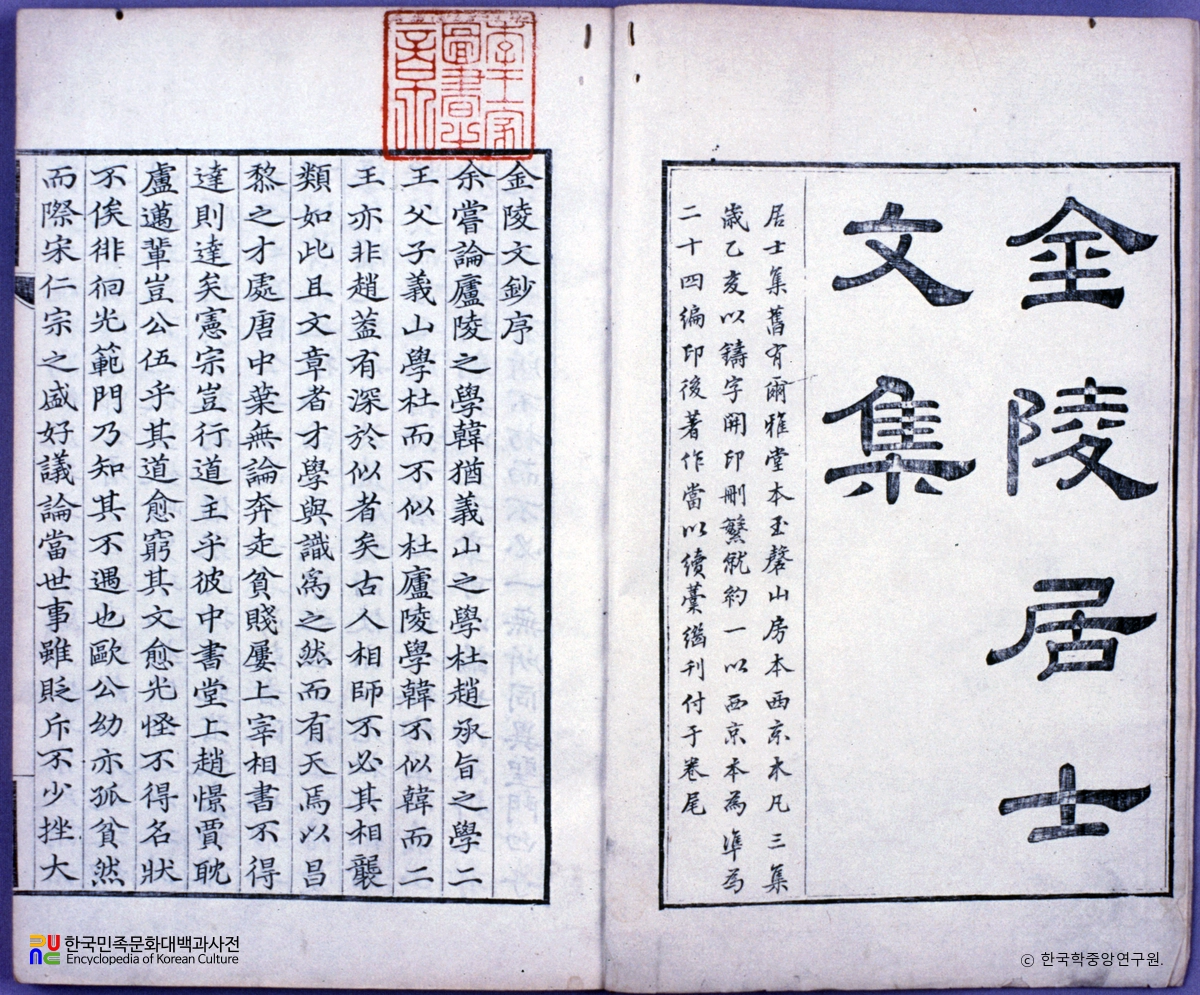 金陵居士
文集
居士集舊有爾雅堂本玉磬山房本西京本凡三集
歲乙亥以鑄字開印刪繁就約一以西京本為準為
二十四編印後著作當以續藁繼刊付于卷尾
李王家圖書之章
金陵文鈔序
余嘗論廬陵之學韓猶義山之學杜趙承旨之學二
王父子義山學杜而不似杜廬陵學韓不似韓而二
王亦非趙蓋有深於似者矣古人相師不必其相襲
類如此且文章者才學與識爲之然而有天焉以昌
黎之才處唐中葉無論奔走貧賤屢上宰相書不得
達則達矣憲宗豈行道主乎彼中書堂上趙憬賈耽
盧邁輩豈公伍乎其道愈窮其文愈光怪不得名狀
不俟徘徊光範門乃知其不遇也歐公幼亦孤貧然
而際宋仁宗之盛好議論當世事雖貶斥不少挫大
한국민족문화대백과사전
Encyclopedia of Korean Culture
ⓒ 한국학중앙연구원.